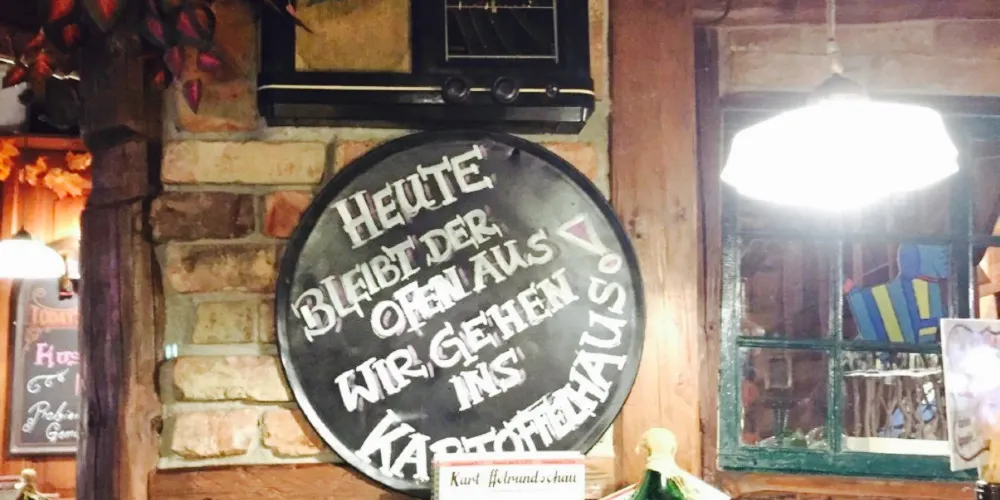 HEUTE
BLEIBT DER
OFEN AUS
WIR GEHEN
INS
KARTOFFELHAUS!
Kart ffelrundschau